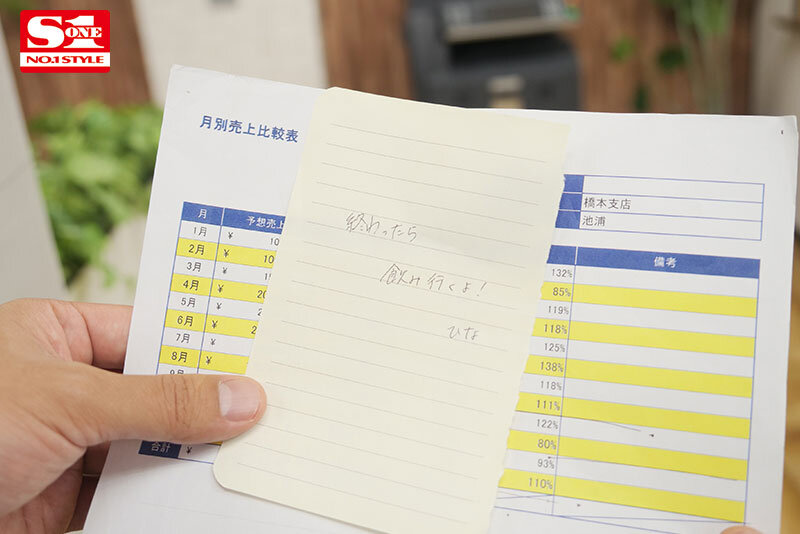 S1 ONE
NO.1 STYLE
月別売上比較表
橋本支店
池浦
月 予想売上
1月 ¥ 10
2月 ¥ 10
3月 ¥ 1
4月 ¥ 20
5月 ¥ 2
6月 ¥ 2
7月 ¥
8月 ¥
合計 ¥
終わったら
飲み行くよ!
ひな
備考
132%
85%
119%
118%
125%
138%
118%
111%
122%
80%
93%
110%